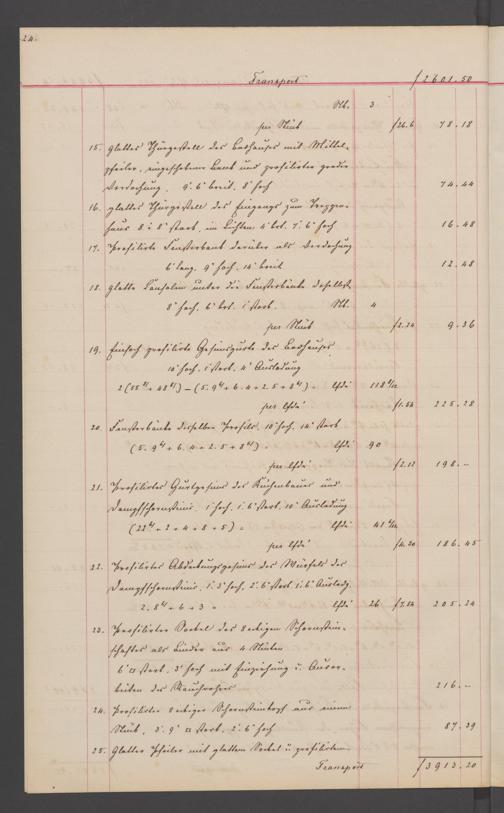 24.
Transport f 2601.50
Stk. 3
per Stück f 26.6 78.18
15. Glattes Thürgestell des Badhauses mit Mittel-
pfeiler, eingeschobener Bank und profilirter grader
Verdachung. 9' 6" breit. 8' hoch 74.44
16. Glattes Thürgestell des Eingangs zum Treppen-
haus 8 i. 8" stark, im Lichten 4' brt. 7' 6" hoch 16.48
17. Profilirte Fensterbank darüber als Verdachung
6' lang. 9" hoch. 14" breit 12.48
18. Glatte unter die Fensterbänke daselbst
8" hoch. 6" brt. 1' stark. Stk. 4
per Stück f 2.24 9.36
19. Einfach profilirte Gesimsgurte des Badhauses
10" hoch. 1' stark. 4" Ausladung
lfde' 118
per lfde' f 1.54 225.28
20. Fensterbänke desselben Profils. 10" hoch. 14" stark
lfde' 90
per lfde' f 2.12 198.–
21. Profilirtes Gurtgesims des Küchenbaues und
Dampfschornsteins. 1' hoch. 1' 6" stark. 10" Ausladung
lfde' 41
per lfde' f 4.20 186.45
22. Profilirtes Abdeckungsgesims des Würfels des
Dampfschornsteins. 1' 3" hoch. 2' 6" stark 1' 6" Ausladg.
lfde' 26 f 7.54 205.24
23. Profilirter Sockel des 8eckigen Schornstein-
schaftes als Binder aus 4 Stücken
6' □ stark. 3' hoch mit Einziehung u. Ausar-
beiten des Rauchrohres 216.–
24. Profilirter 8eckiger Schornsteinkopf aus einem
Stück. 3' 9" □ stark. 2' 6" hoch 87.29
25. Glatter Pfeiler mit glattem Sockel u. profilirtem
Transport f 3913.20